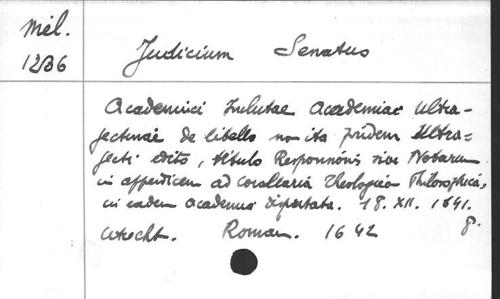 Mél.
1286
Judicium Senatus
Academici Inclutae Academiae Ultra-
jectinae de libello non ita pridem Ultra-
jecti edito, titulo Responsionis sive Notarum
in appendicem ad Corollaria Theologico Philosophica,
in eadem Academia disputata. 18. XII. 1641.
Utrecht. Roman. 1642 8.